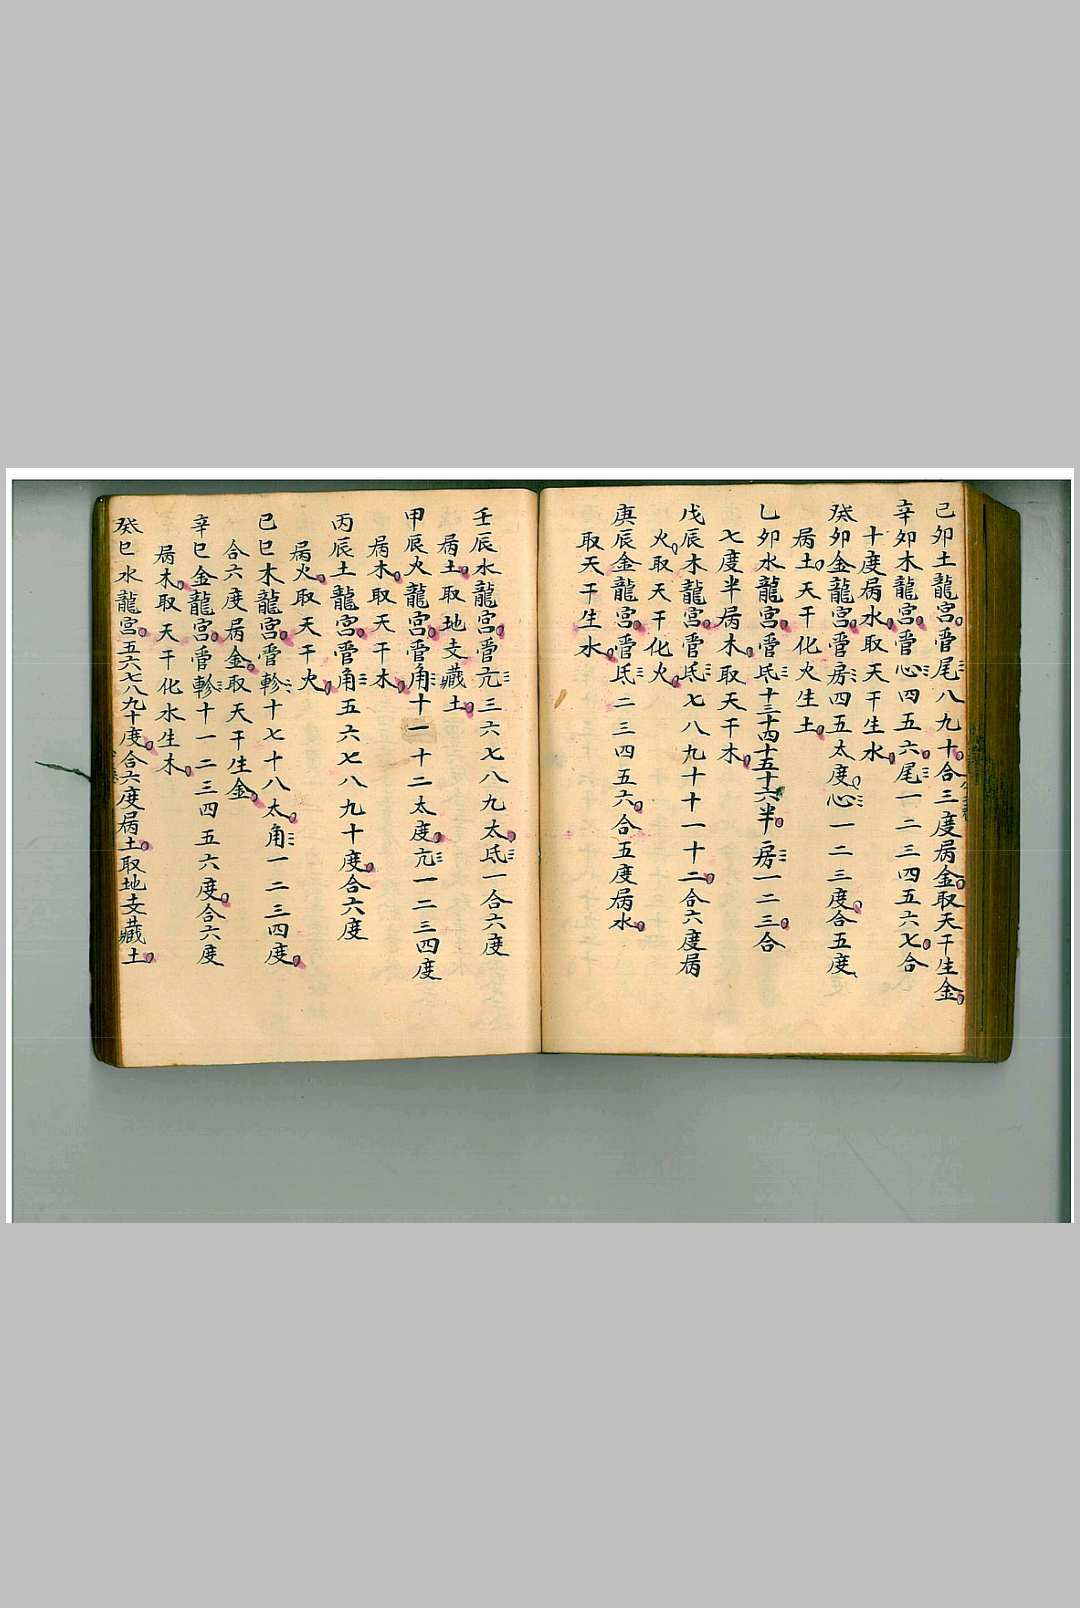 己卯土龍宮管尾八九十合三度屬金取天干生金
辛卯木龍宮管心四五六尾一二三四五六七合
十度屬水取天干生水
癸卯金龍宮管房四五太度心一二三度合五度
屬土天干化火生土
乙卯水龍宮管氐十三十四十五十六半房一二三合
七度半屬木取天干木
戊辰木龍宮管氐七八九十十一十二合六度屬
火取天干化火
庚辰金龍宮管氐二三四五六合五度屬水
取天干生水
壬辰水龍宮管亢三六七八九太氐一合六度
屬土取地支藏土
甲辰火龍宮管角十一十二太度亢一二三四度
屬木取天干木
丙辰土龍宮管角五六七八九十度合六度
屬火取天干火
己巳木龍宮管軫十七十八太角一二三四度
合六度屬金取天干生金
辛巳金龍宮管軫十一二三四五六度合六度
屬木取天干化水生木
癸巳水龍宮五六七八九十度合六度屬土取地支藏土